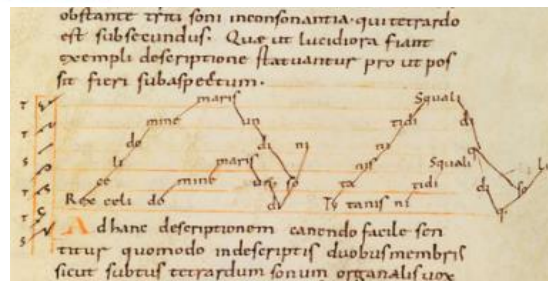 obstante triti soni inconsonantia· qui tetrardo
est subsecundus. Quae ut lucidiora fiant
exempli descriptione statuantur pro ut pos
sit fieri sub aspectum.
maris Squali
T
mine un tidi di
T
do di ni ni q
S
li maris nis Squali
T
ce mine so ta tidi di so
T
Rex coeli do di Ty tanis ni q
S
Ad hanc descriptionem canendo facile sen
titur quomodo in descriptis duobus membris
sicut subtus tetrardum sonum organalis vox